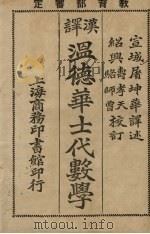 教育部審定
宣城屠坤華譯述
紹興壽孝天校訂
紹興駱師曾
漢譯
溫德華士代數學
上海商務印書館印行